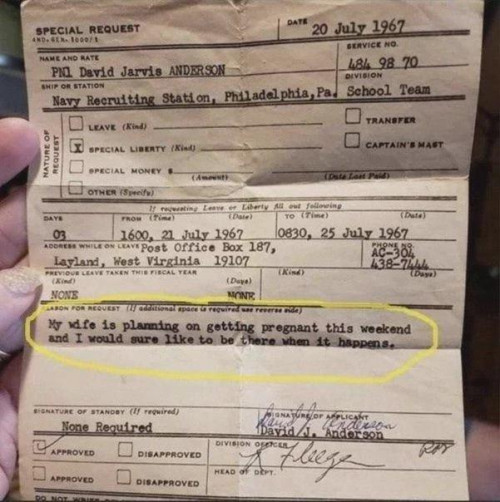 SPECIAL REQUEST
DATE 20 July 1967
NAME AND RATE
SERVICE NO.
PN1 David Jarvis ANDERSON
484 98 70
SHIP OR STATION
DIVISION
Navy Recruiting Station, Philadelphia, Pa. School Team
NATURE OF REQUEST
LEAVE (Kind)
TRANSFER
X SPECIAL LIBERTY (Kind)
CAPTAIN'S MAST
SPECIAL MONEY $
(Amount)
(Date Last Paid)
OTHER (Specify)
If requesting Leave or Liberty fill out following
DAYS FROM (Time) (Date) TO (Time) (Date)
03 1600, 21 July 1967 0830, 25 July 1967
ADDRESS WHILE ON LEAVE Post Office Box 187,
PHONE NO.
AC-304
Layland, West Virginia 19107
438-7444
PREVIOUS LEAVE TAKEN THIS FISCAL YEAR
(Kind) (Days) (Kind) (Days)
NONE NONE
REASON FOR REQUEST (If additional space is required use reverse side)
My wife is planning on getting pregnant this weekend
and I would sure like to be there when it happens.
SIGNATURE OF STANDBY (If required)
SIGNATURE OF APPLICANT
None Required
David J. Anderson
David J. Anderson
APPROVED DISAPPROVED
DIVISION OFFICER
APPROVED DISAPPROVED
HEAD OF DEPT.